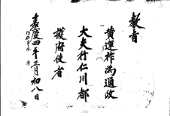 教旨
黃運祚爲通政
大夫行仁川都
護府使者
嘉慶四年三月初八日